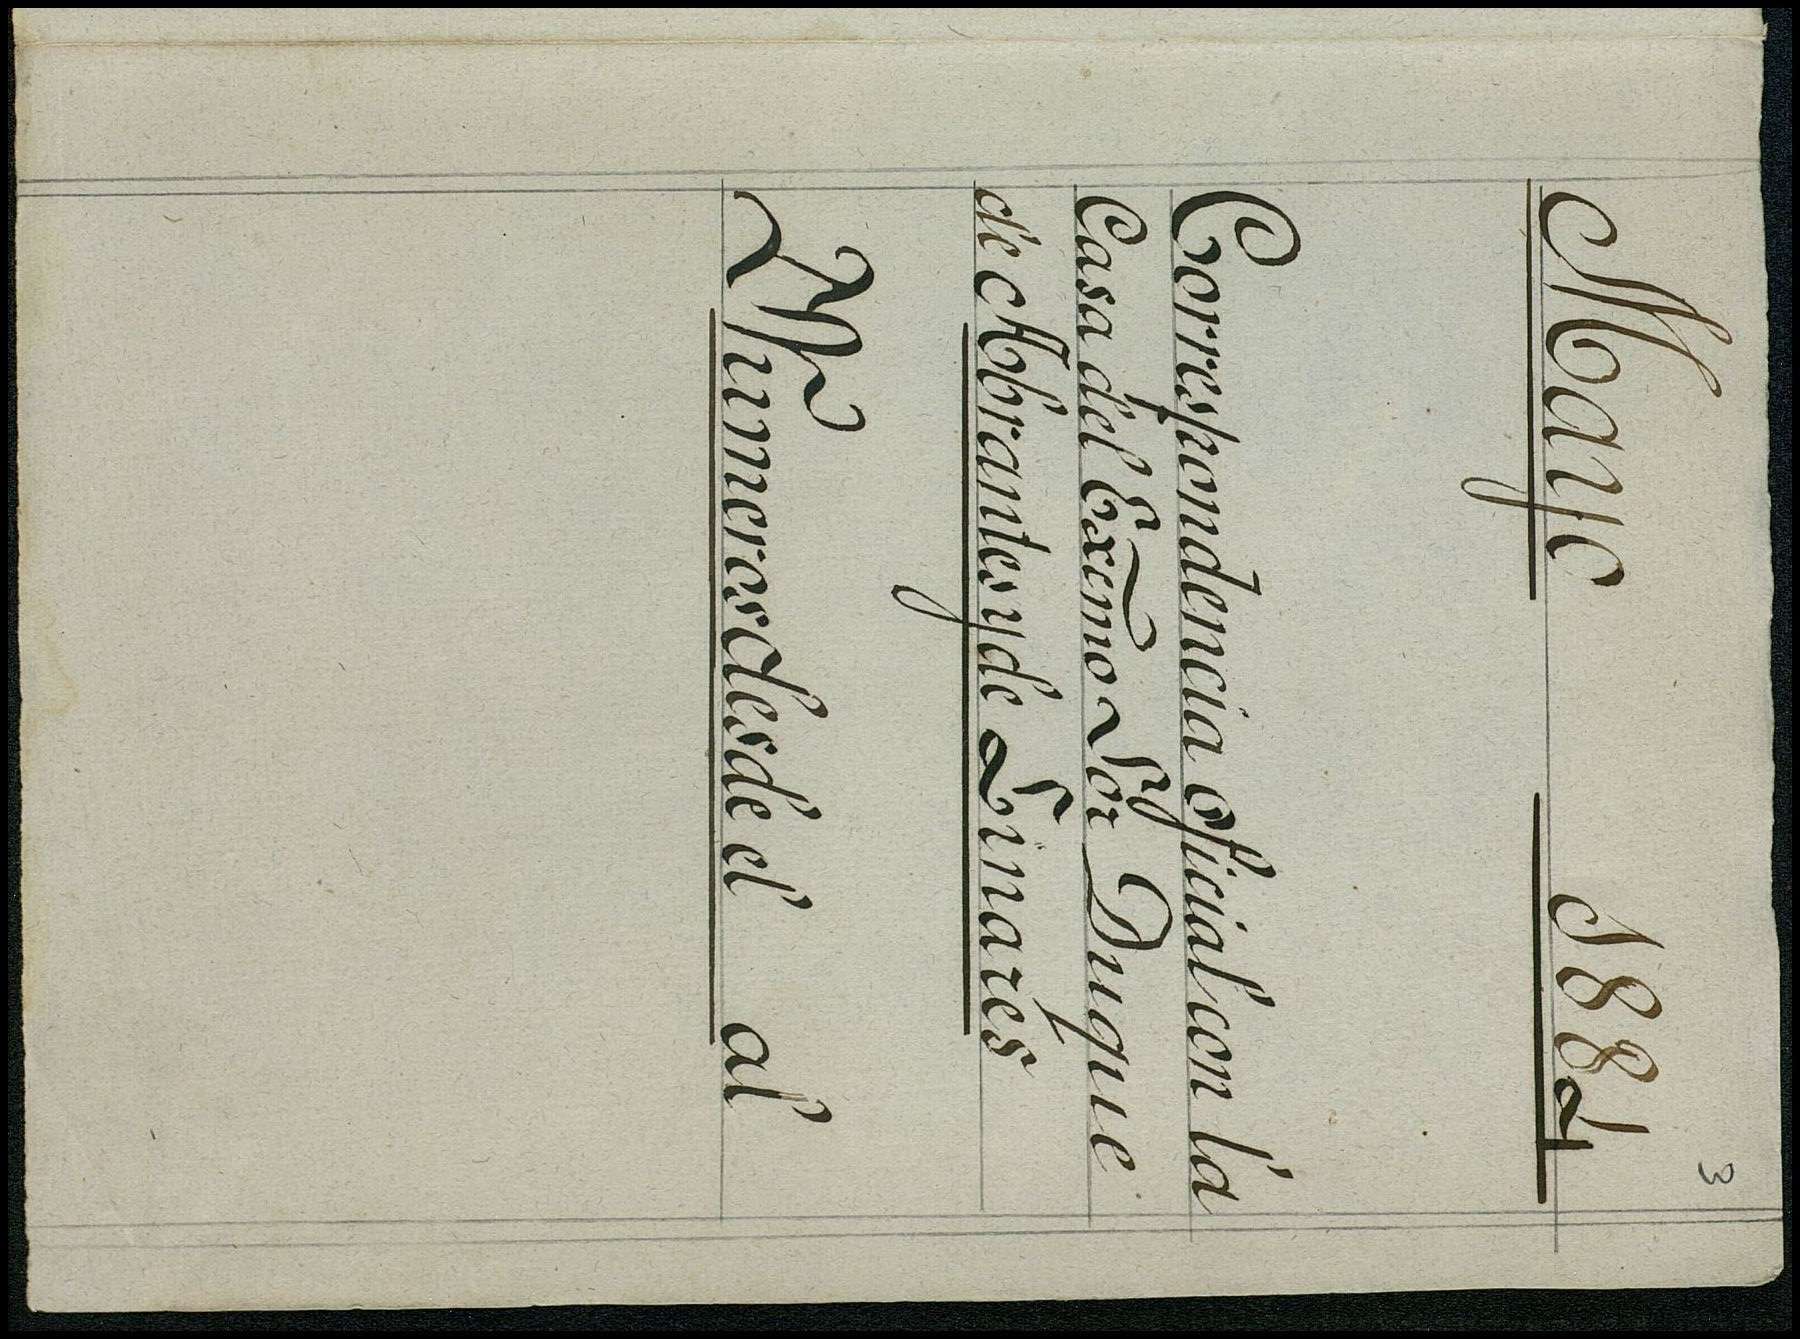 3
Mayo 1882
Correspondencia oficial con la
Casa del Excmo Sor Duque
de Abrantes y de Linares
Numeros desde el al